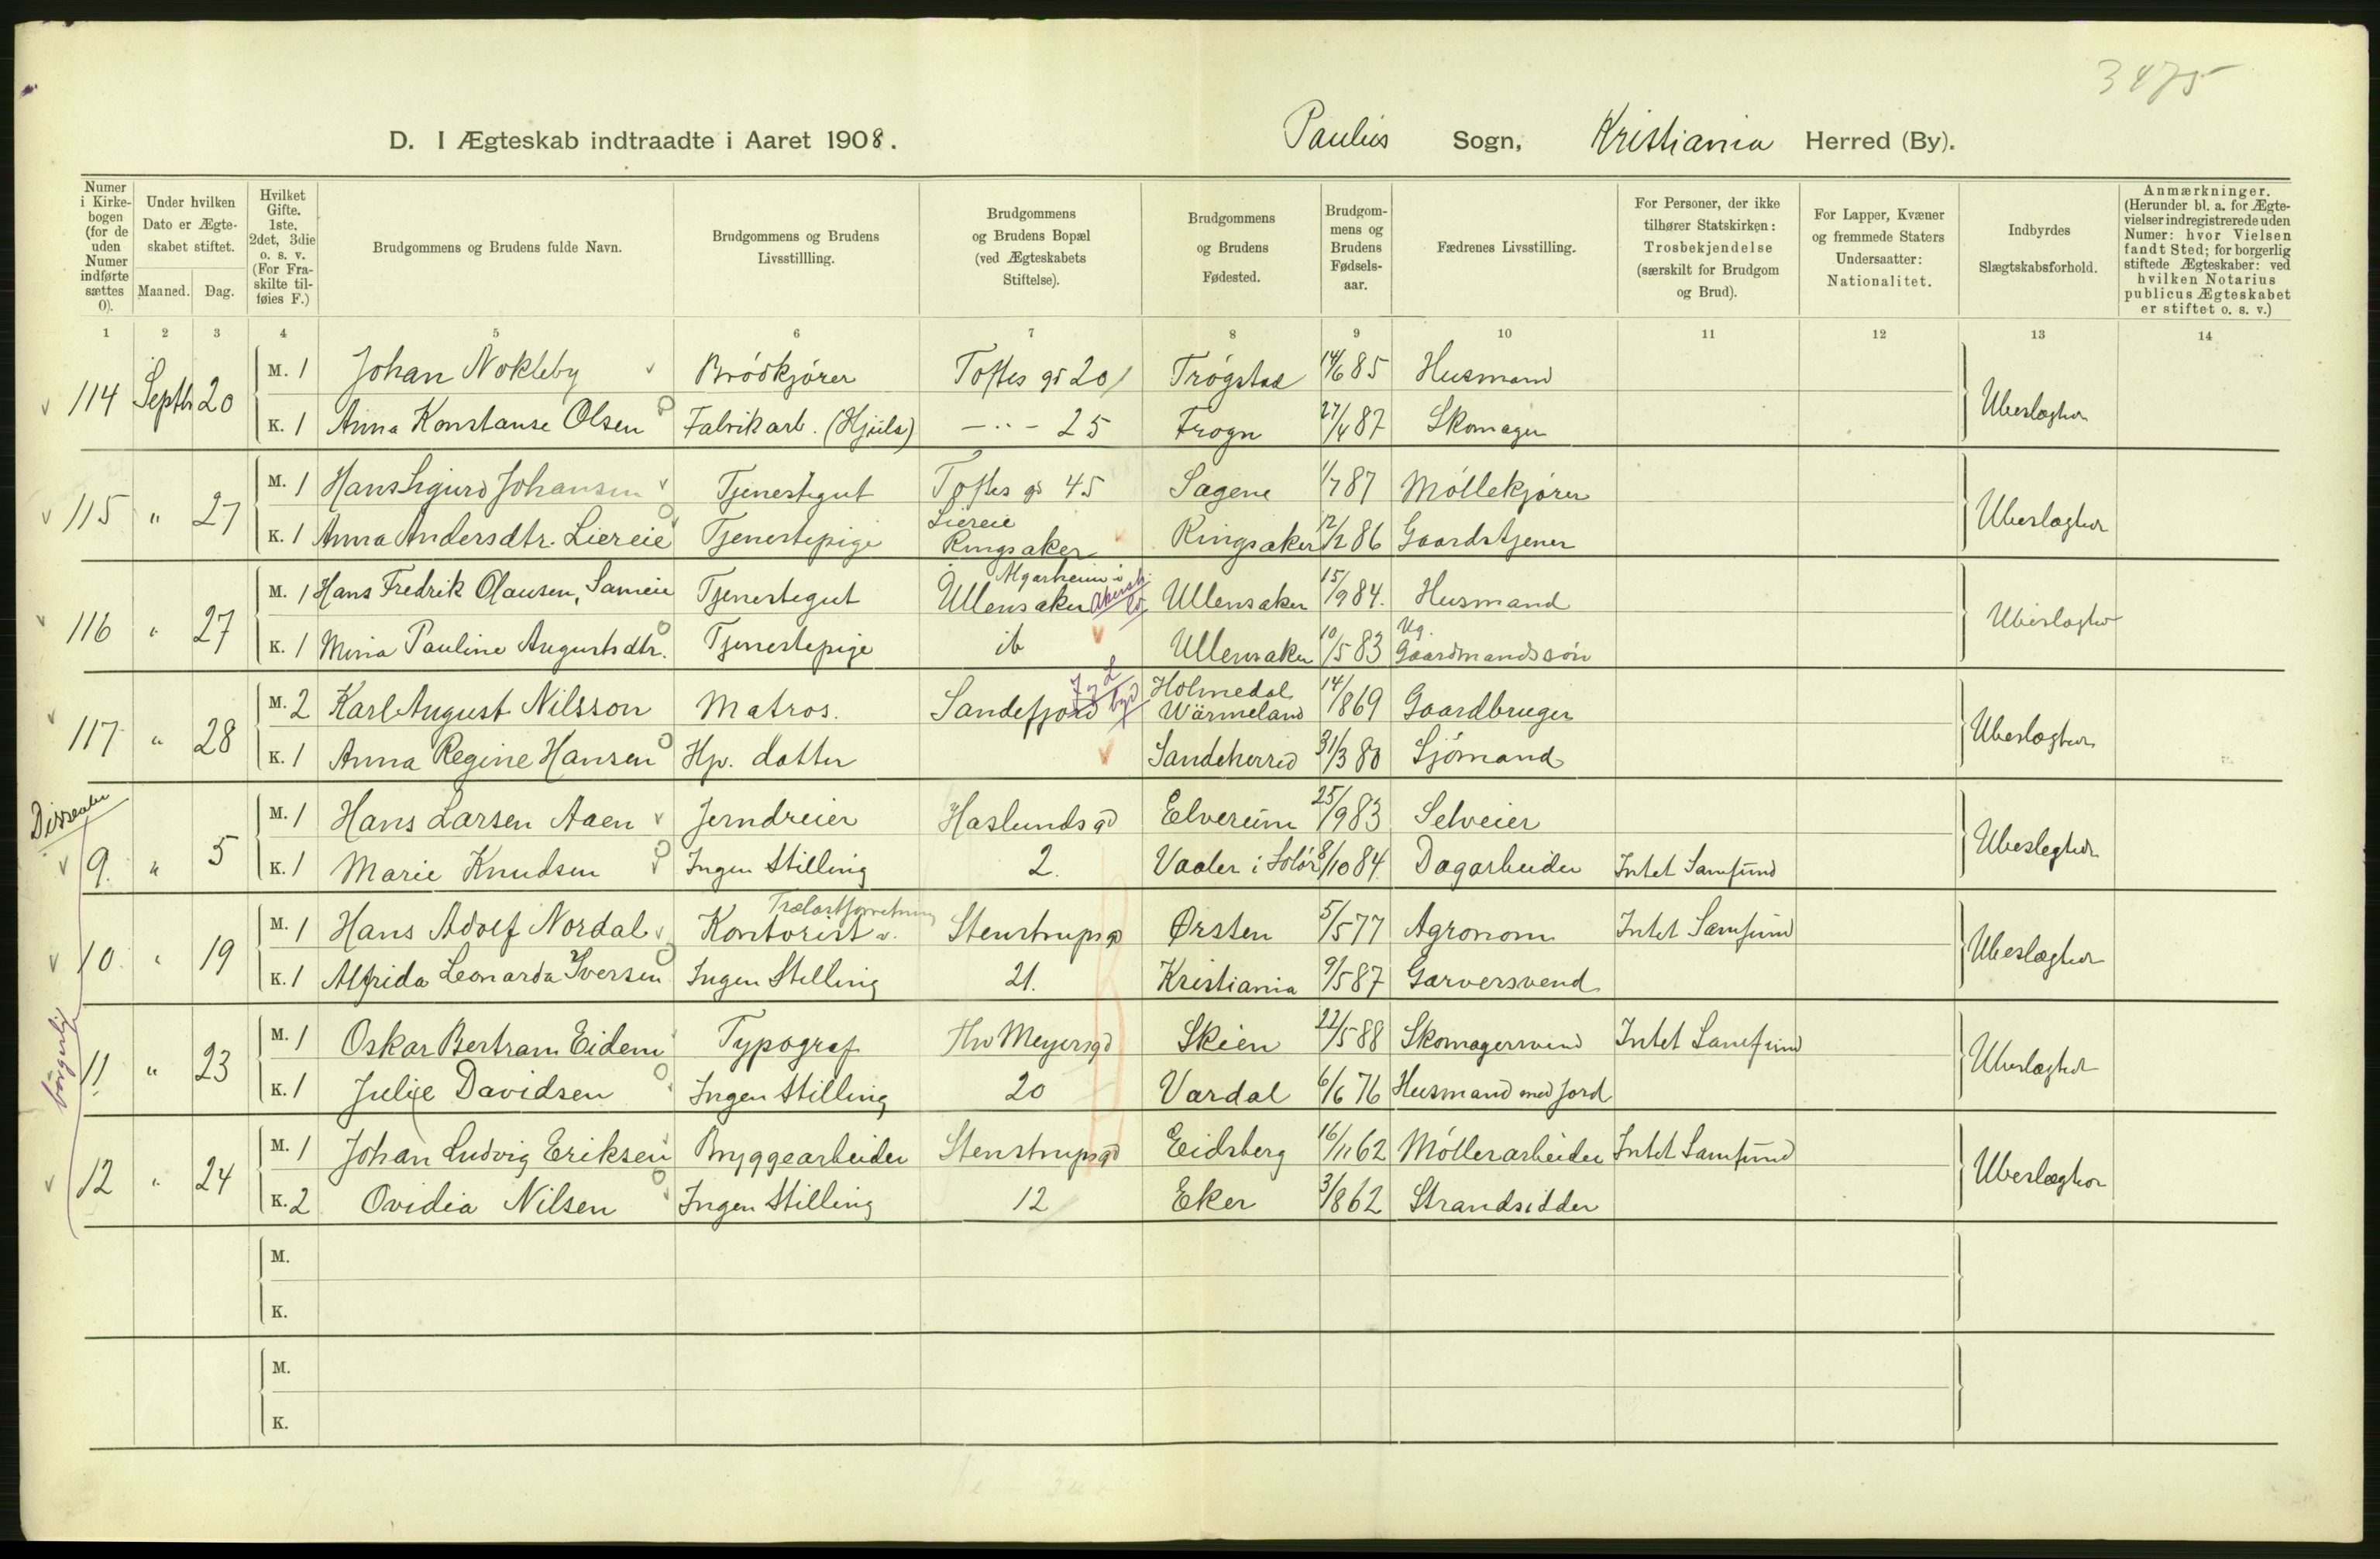 3475
D. I Ægteskab indtraadte i Aaret 1908. Paulus Sogn, Kristiania Herred (By).
Numer i Kirkebogen (for de uden Numer indførte sættes 0).
Under hvilken Dato er Ægteskabet stiftet.
Maaned. Dag.
Hvilket Gifte. 1ste, 2det, 3die o. s. v. (For Fraskilte tilføies F.)
Brudgommens og Brudens fulde Navn.
Brudgommens og Brudens Livsstillling.
Brudgommens og Brudens Bopæl (ved Ægteskabets Stiftelse).
Brudgommens og Brudens Fødested.
Brudgommens og Brudens Fødselsaar.
Fædrenes Livsstilling.
For Personer, der ikke tilhører Statskirken: Trosbekjendelse (særskilt for Brudgom og Brud).
For Lapper, Kvæner og fremmede Staters Undersaatter: Nationalitet.
Indbyrdes Slægtskabsforhold.
Anmærkninger. (Herunder bl. a. for Ægtevielser indregistrerede uden Numer: hvor Vielsen fandt Sted; for borgerlig stiftede Ægteskaber: ved hvilken Notarius publicus Ægteskabet er stiftet o. s. v.)
1 2 3 4 5 6 7 8 9 10 11 12 13 14
114 Septb 20 M. 1 Johan Nokleby Brödkjörer Toftes gd 20 Trögstad 14/6 85 Husmand Ubeslægtet
K. 1 Anna Konstanse Olsen Fabrikarb. (Hjula) - " - 25 Frogn 27/4 87 Skomager
115 " 27 M. 1 Hans Sigurd Johansen Tjenestegut Toftes gd 45 Sagene 1/7 87 Möllekjörer Ubeslægtet
K. 1 Anna Andersdtr. Liereie Tjenestepige Liereie Ringsaker Ringsaker 12/2 86 Gaardstjener
116 " 27 M. 1 Hans Fredrik Olausen, Sameie Tjenestegut Algarheim i Ullensaker Ullensaker 15/9 84. Husmand Ubeslægtet
K. 1 Mina Pauline Augustsdtr. Tjenestepige ib Ullensaker 10/5 83 Ug. Gaardmandssön
117 " 28 M. 2 Karl August Nilsson Matros. Sandefjord Holmedal Wärmeland 14/1 869 Gaardbruger Ubeslægtet
K. 1 Anna Regine Hansen Hp. datter Sandeherred 31/3 80 Sjömand
Dissenter
9. " 5 M. 1 Hans Larsen Aaen Jerndreier Haslunds gd Elverum 25/9 83 Selveier Ubeslegtet
K. 1 Marie Knudsen Ingen Stilling 2. Vaaler i Solör 8/10 84. Dagarbeider Intet Samfund
10. " 19 M. 1 Hans Adolf Nordal Kontorist v. Trælastforretning Stenstrupsgd Ørsten 5/5 77 Agronom Intet Samfund Ubeslægtet
K. 1 Alfrida Leonarda Iversen Ingen Stilling 21. Kristiania 9/5 87 Garversvend
borgerlig
11. " 23 M. 1 Oskar Bertram Eidem Typograf Thv Meyersgd Skien 22/5 88 Skomagersvend Intet Samfund Ubeslægtet
K. 1 Julie Davidsen Ingen Stilling 20 Vardal 6/6 76 Husmand med Jord
12 " 24 M. 1 Johan Ludvig Eriksen Bryggearbeider Stenstrupsgd Eidsberg 16/11 62 Möllerarbeider Intet Samfund Ubeslægtet
K. 2 Ovidia Nilsen Ingen Stilling 12 Eker 3/8 62 Strandsidder
M.
K.
M.
K.